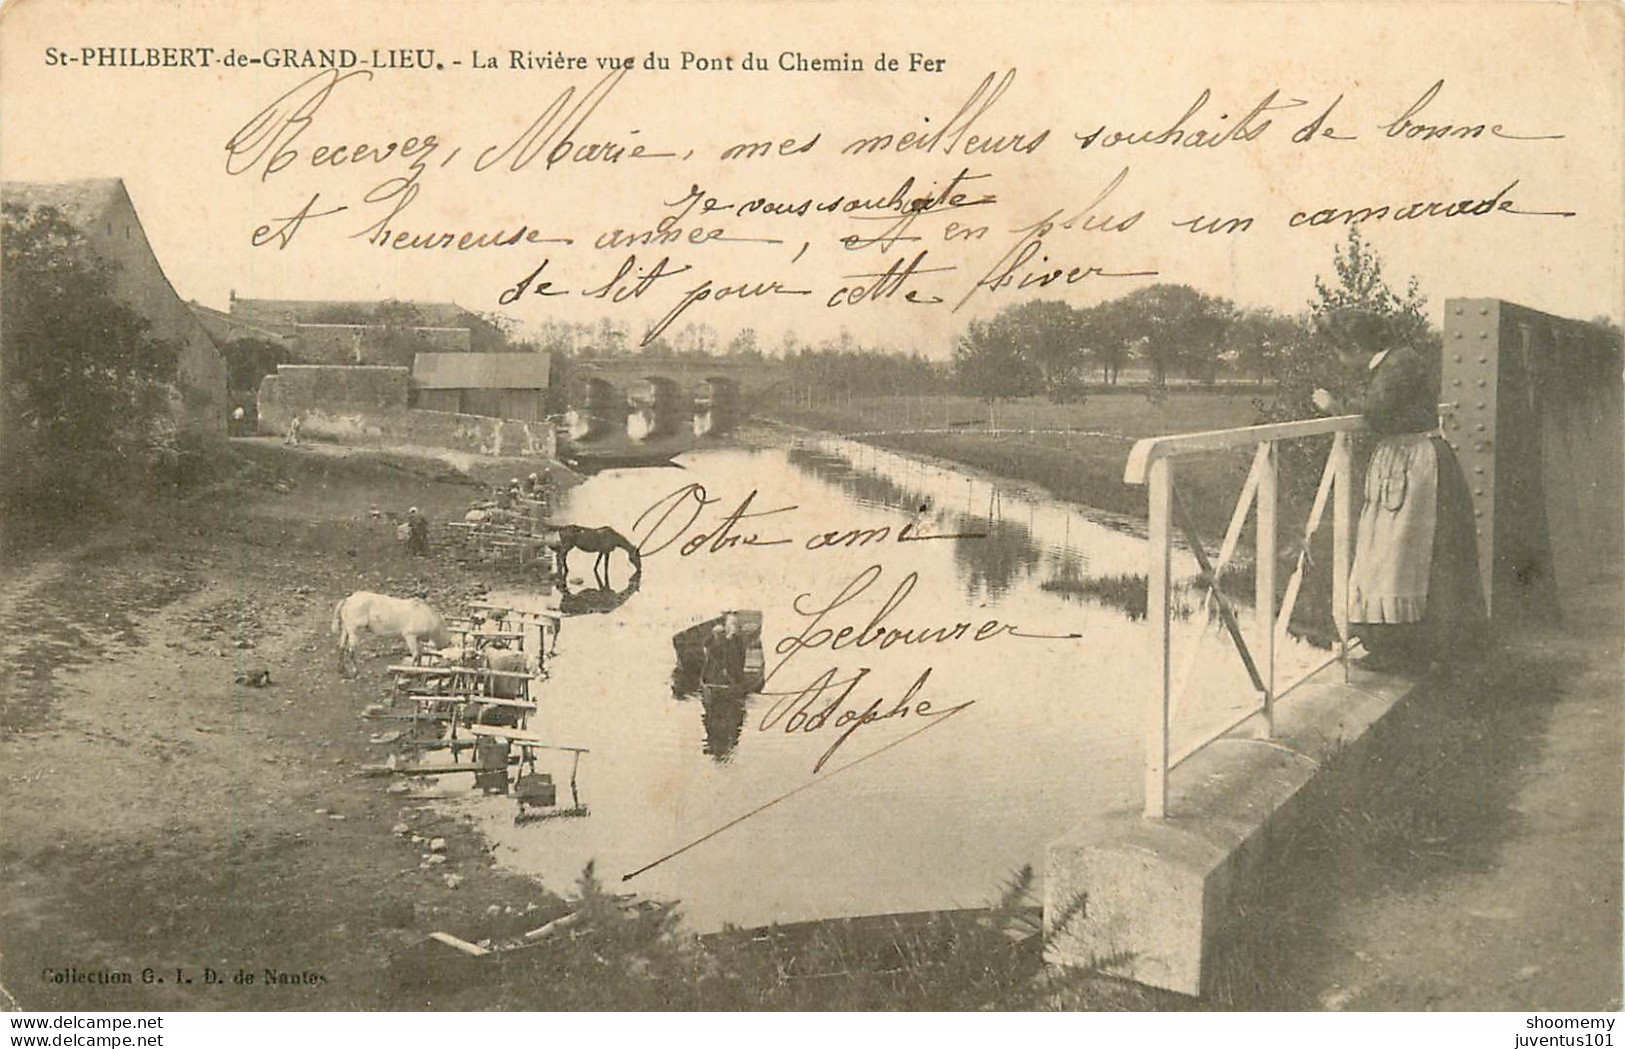 St-PHILBERT-de-GRAND-LIEU. - La Rivière vue du Pont du Chemin de Fer
Recevez, Marie, mes meilleurs souhaits de bonne
Je vous souhaite
et heureuse année, et en plus un camarade
de lit pour cette hiver
Votre ami
Lebouvier
Adophe
Collection G. I. D. de Nantes
www.delcampe.net
www.delcampe.net
shoomemy
juventus101